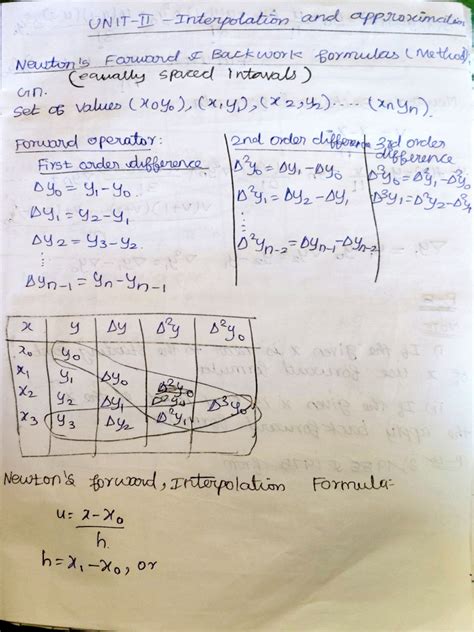 UNIT-II - Interpolation and approximation
Newton's Forward & Backwork formulas (Method),
(equally spaced Intervals)
Gn.
Set of values (x₀y₀), (x₁y₁), (x₂,y₂) .... (xₙyₙ).
Forward operator:
First order difference
Δy₀ = y₁-y₀.
Δy₁ = y₂-y₁
Δy₂ = y₃-y₂.
⋮
Δyₙ₋₁ = yₙ-yₙ₋₁
2nd order difference
Δ²y₀ = Δy₁-Δy₀
Δ²y₁ = Δy₂-Δy₁
⋮
Δ²yₙ₋₂ = Δyₙ₋₁-Δyₙ₋₂
3rd order
difference
Δ³y₀ = Δ²y₁-Δ²y₀
Δ³y₁ = Δ²y₂-Δ²y₁
x y Δy Δ²y Δ²y₀
x₀ y₀
x₁ y₁ Δy₀
x₂ y₂ Δy₁ Δ²y₀ Δ³y₀
x₃ y₃ Δy₂ Δ²y₁
Newton's forward, Interpolation Formula:-
u = x-x₀
h.
h = x₁-x₀, or